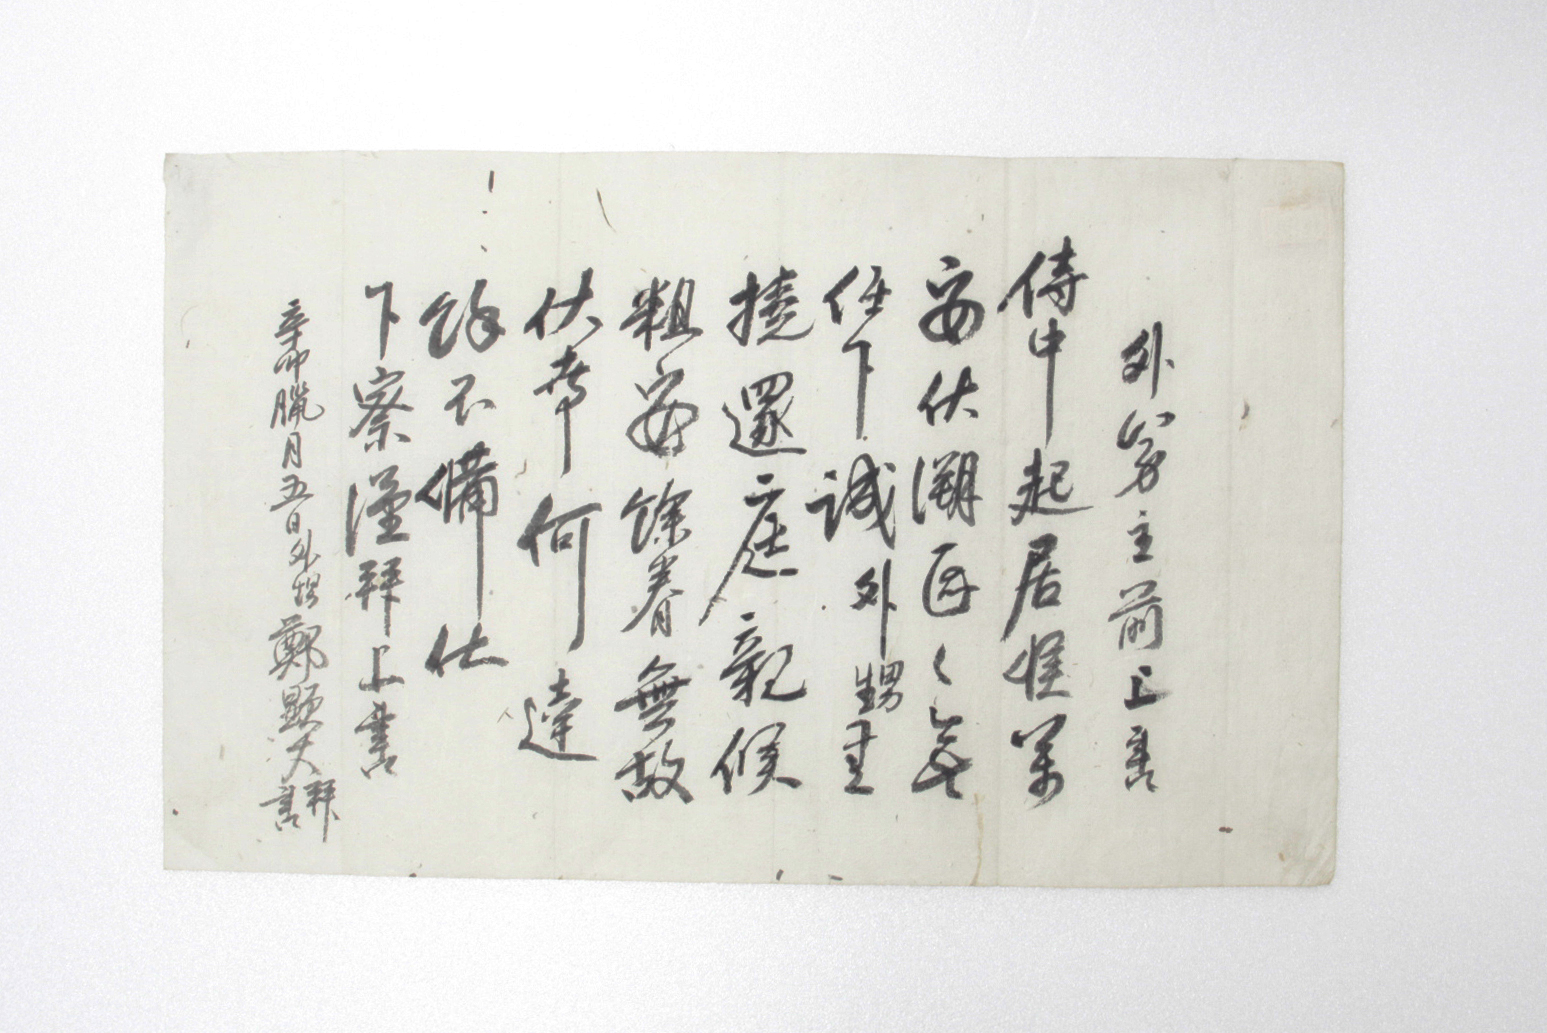 外舅主前上書
侍中起居候萬
安伏溯區〻無
任下誠外甥
撓還庭親候
粗安餘眷無故
伏幸何達
餘不備伏
下察謹拜上書
辛卯臘月五日外甥鄭顯大拜書